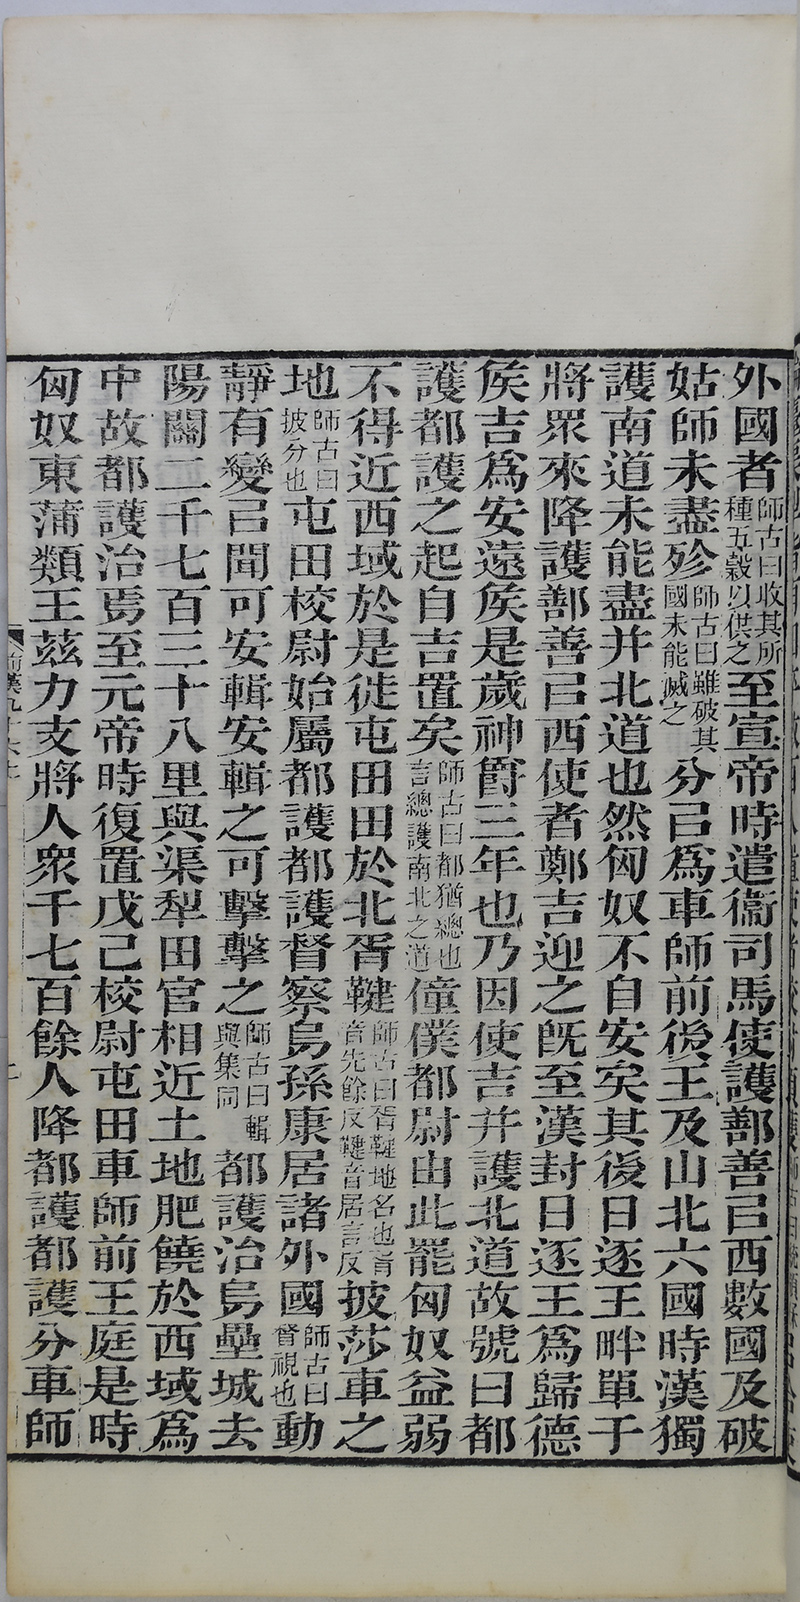 外國者師古曰收其所種五穀以供之至宣帝時遣衞司馬使護鄯善㠯西數國及破
姑師未盡殄師古曰雖破其國未能滅之分㠯爲車師前後王及山北六國時漢獨
護南道未能盡并北道也然匈奴不自安矣其後日逐王畔單于
將眾來降護鄯善㠯西使者鄭吉迎之既至漢封日逐王爲歸德
侯吉爲安遠侯是歲神爵三年也乃因使吉并護北道故號曰都
護都護之起自吉置矣師古曰都猶總也言總護南北之道僮僕都尉由此罷匈奴益弱
不得近西域於是徙屯田田於北胥鞬師古曰胥鞬地名也胥音先餘反鞬音居言反披莎車之
地師古曰披分也屯田校尉始屬都護都護督察烏孫康居諸外國師古曰督視也動
靜有變㠯聞可安輯安輯之可擊擊之師古曰輯與集同都護治烏壘城去
陽關二千七百三十八里與渠犁田官相近土地肥饒於西域爲
中故都護治焉至元帝時復置戊己校尉屯田車師前王庭是時
匈奴東蒲類王茲力支將人衆千七百餘人降都護都護分車師
前漢九十六上
二